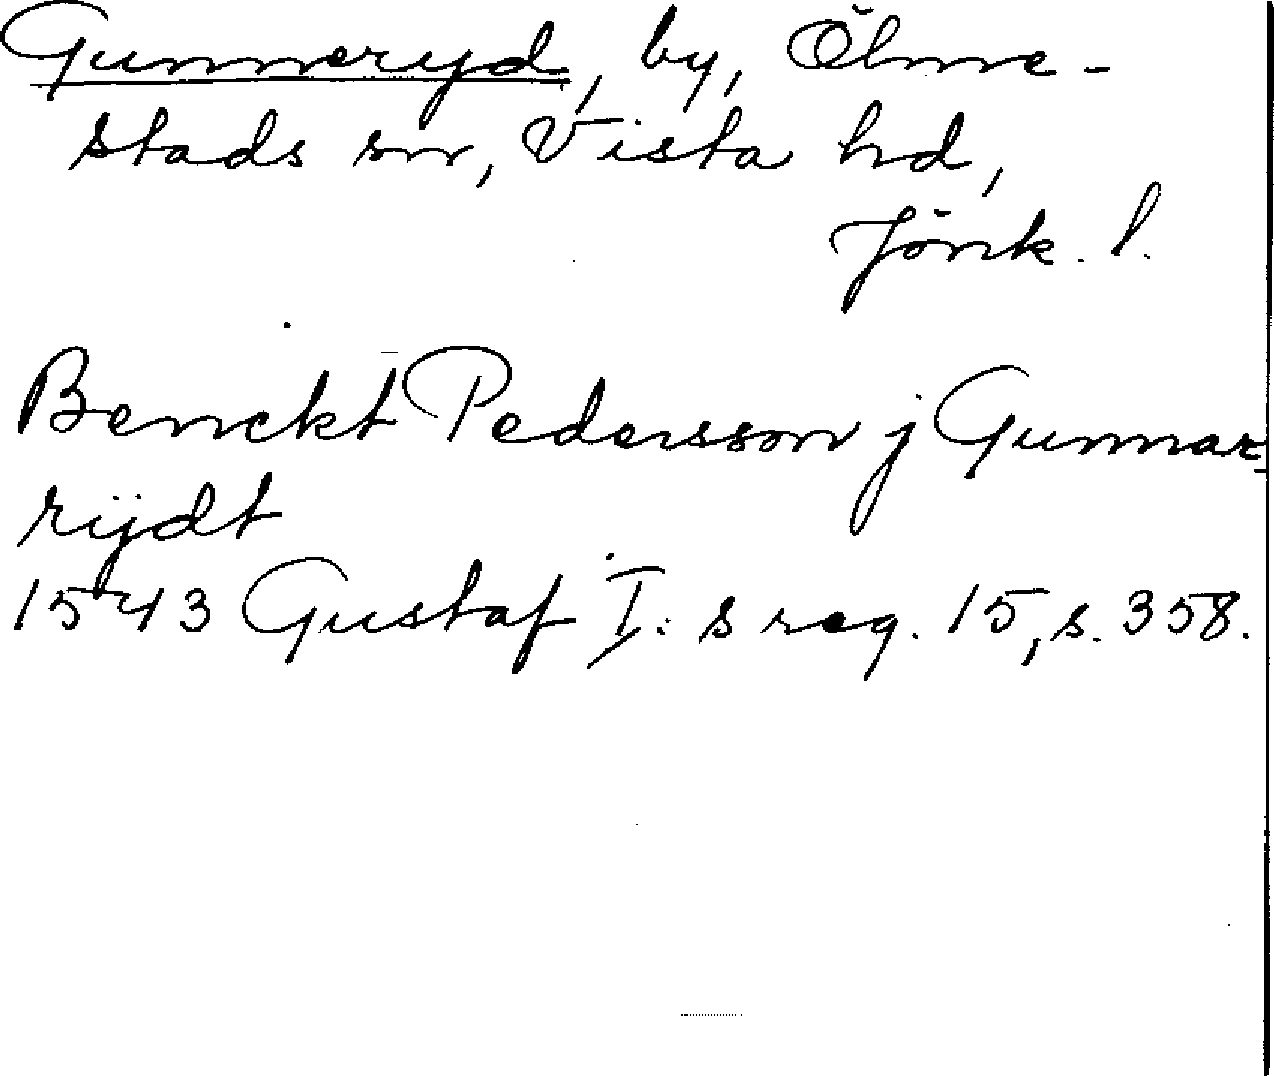 Gunneryd, by, Ölme-
stads sn, Vista hd,
Jönk. l.
Benckt Pedersson j Gunnar-
rÿdt
1543 Gustaf I:s reg. 15, s. 358.